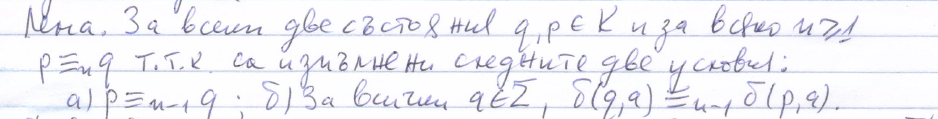 Лема. За всеки две състояния q, p ∈ K и за всяко n ≥ 1
p ≡ₙ q т.т.к. са изпълнени следните две условия:
а) p ≡ₙ₋₁ q ; б) За всички a ∈ Σ, δ(q,a) ≡ₙ₋₁ δ(p,a).